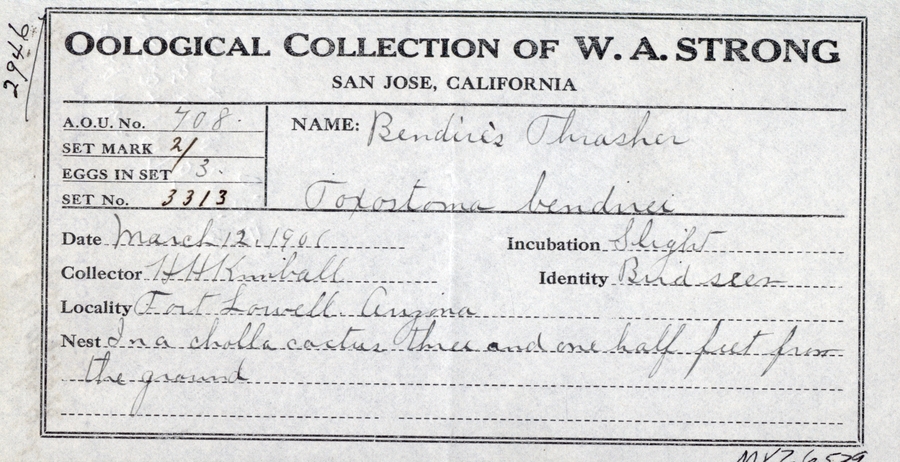 2946
OOLOGICAL COLLECTION OF W. A. STRONG
SAN JOSE, CALIFORNIA
A.O.U. No. 708.
SET MARK 2/
EGGS IN SET 3.
SET No. 3313
NAME: Bendire's Thrasher
Toxostoma bendirei
Date March 12, 1901
Incubation Slight
Collector H H Kimball
Identity Bird seen
Locality Fort Lowell. Arizona
Nest In a cholla cactus three and one half feet from
the ground